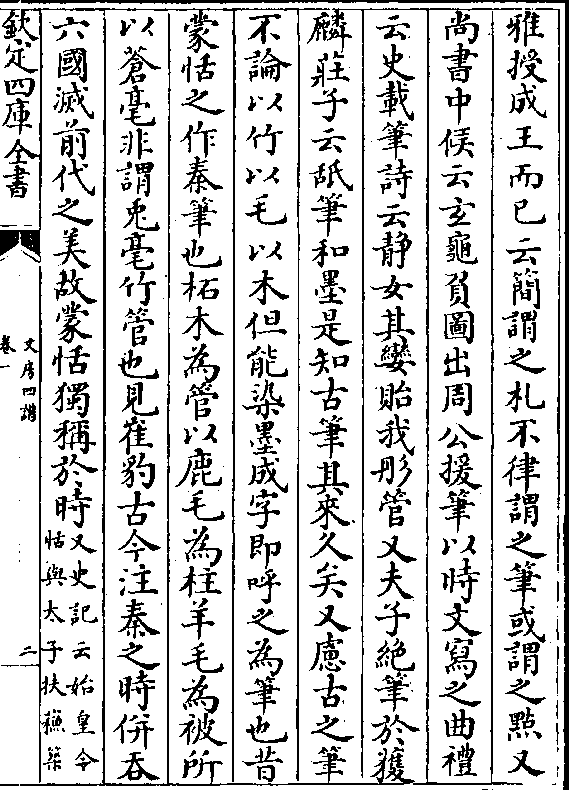 雅授成王而已云簡謂之札不律謂之筆或謂之㸃又
尚書中候云玄龜負圖出周公援筆以時文寫之曲禮
云史載筆詩云静女其孌貽我彤管又夫子絶筆於獲
麟莊子云舐筆和墨是知古筆其來久矣又慮古之筆
不論以竹以毛以木但能染墨成字即呼之為筆也昔
蒙恬之作秦筆也柘木為管以鹿毛為柱羊毛為被所
以蒼毫非謂兎毫竹管也見崔豹古今注秦之時併吞
六國滅前代之美故蒙恬獨稱於時又史記云始皇令
恬與太子扶蘇築
欽定四庫全書
文房四譜
卷一
二